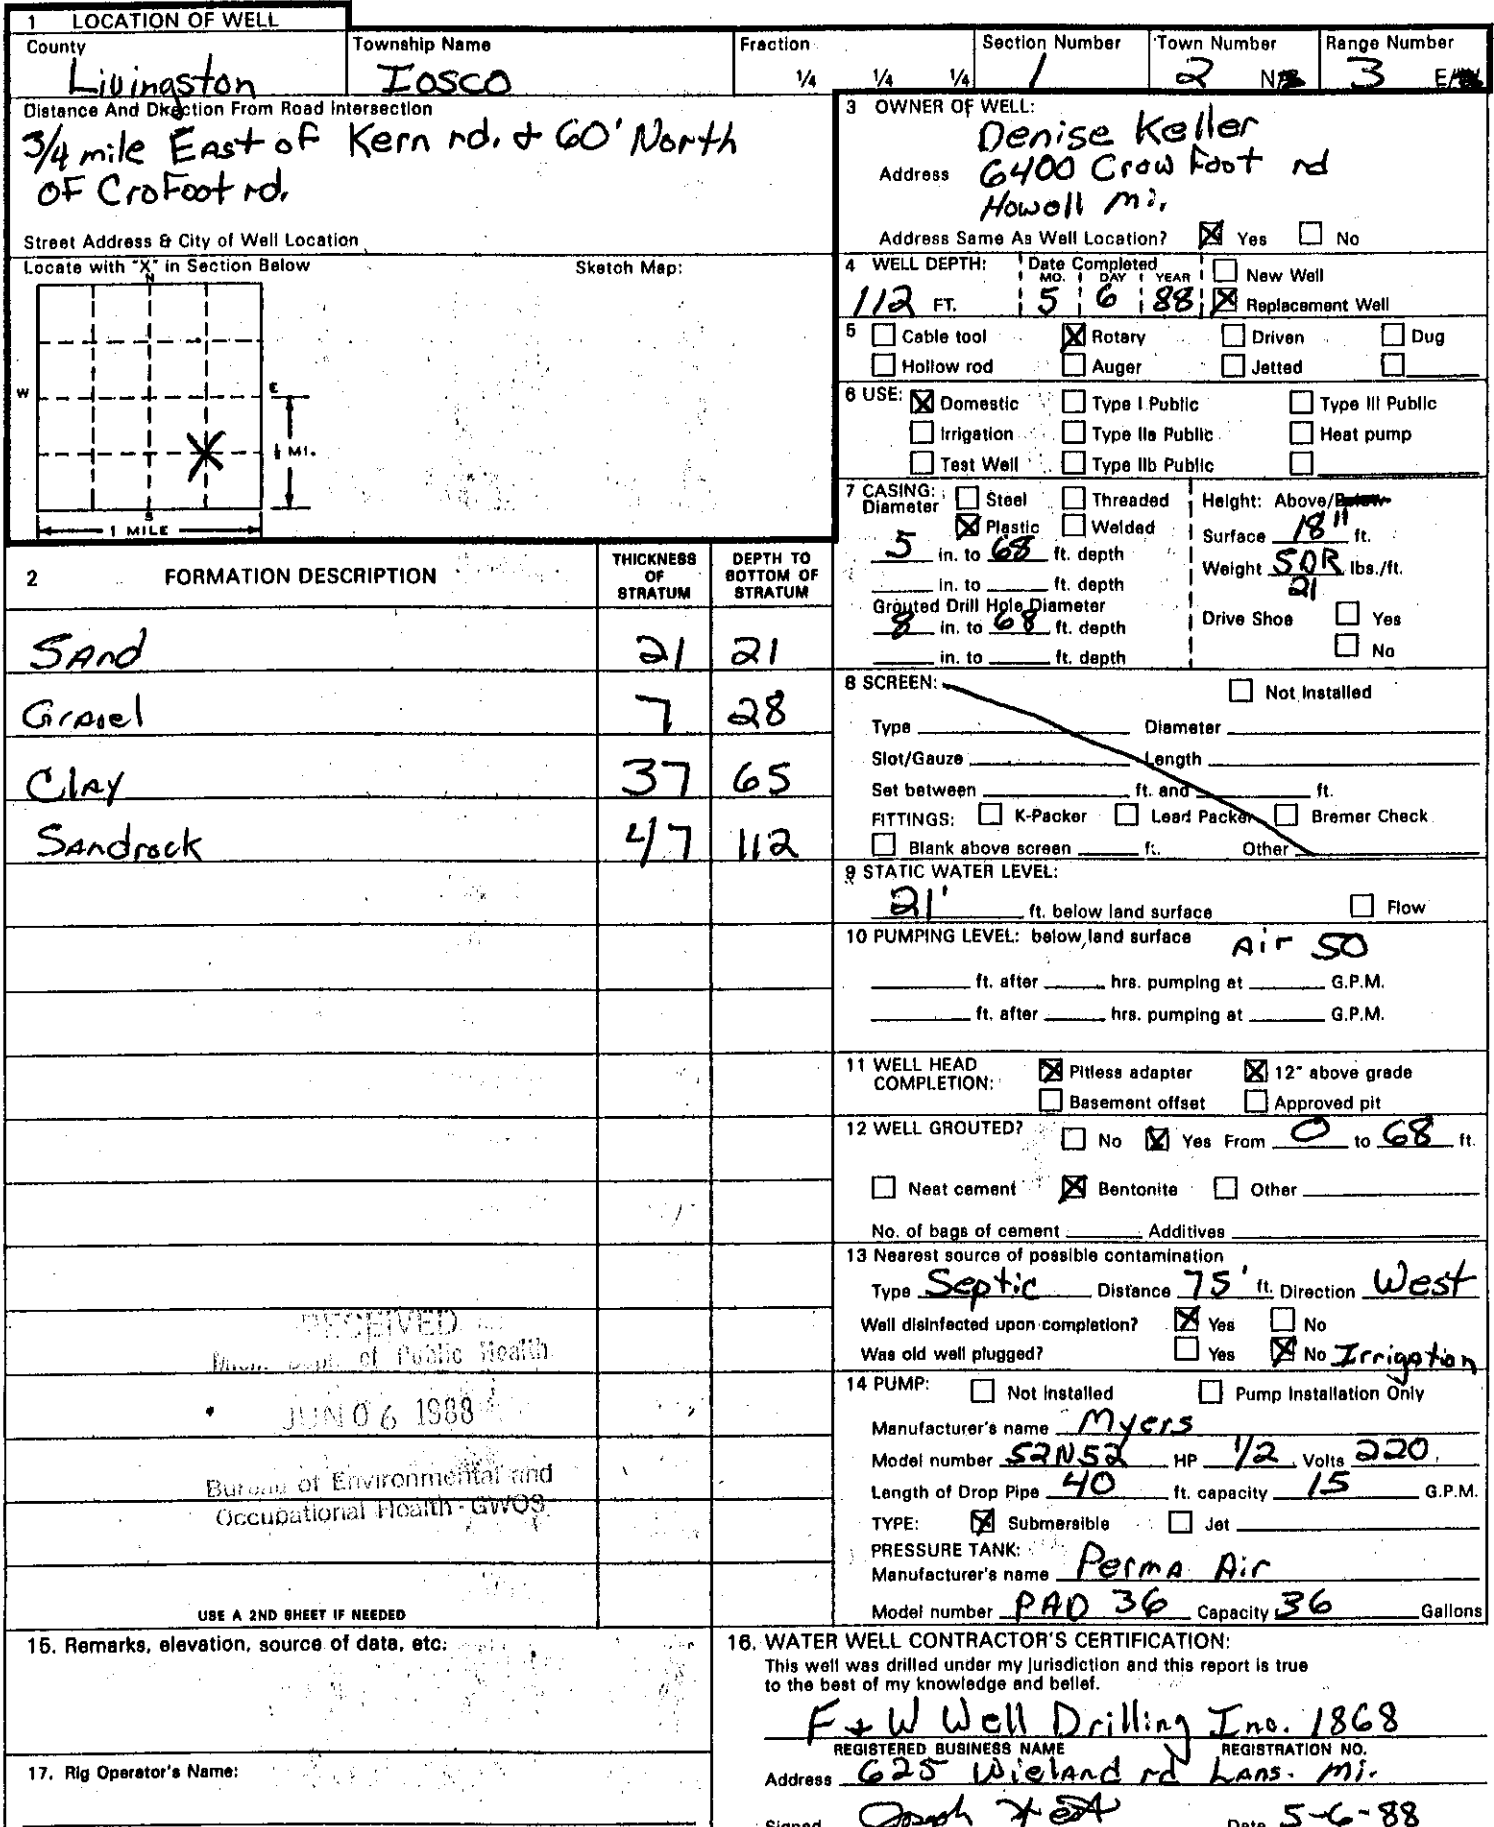 1 LOCATION OF WELL
County Livingston
Township Name Iosco
Fraction 1/4 1/4 1/4
Section Number 1
Town Number 2 N
Range Number 3 E
Distance And Direction From Road Intersection
3/4 mile East of Kern rd. & 60' North
of CroFoot rd.
Street Address & City of Well Location
Locate with "X" in Section Below
Sketch Map:
N
W
E
S
MI.
1 MILE
2 FORMATION DESCRIPTION
THICKNESS OF STRATUM
DEPTH TO BOTTOM OF STRATUM
Sand 21 21
Gravel 7 28
Clay 37 65
Sandrock 47 112
RECEIVED
Mich. Dept. of Public Health
JUN 06 1988
Bureau of Environmental and
Occupational Health - GWQS
USE A 2ND SHEET IF NEEDED
3 OWNER OF WELL:
Denise Keller
Address 6400 Crow Foot rd
Howell Mi.
Address Same As Well Location? Yes No
4 WELL DEPTH: 112 FT.
Date Completed
MO. DAY YEAR
5 6 88
New Well
Replacement Well
5 Cable tool Rotary Driven Dug
Hollow rod Auger Jetted
6 USE: Domestic Type I Public Type III Public
Irrigation Type IIa Public Heat pump
Test Well Type IIb Public
7 CASING: Steel Threaded
Diameter Plastic Welded
5 in. to 68 ft. depth
in. to ft. depth
Grouted Drill Hole Diameter
8 in. to 68 ft. depth
in. to ft. depth
Height: Above/Below
Surface 18" ft.
Weight SDR 21 lbs./ft.
Drive Shoe Yes
No
8 SCREEN: Not Installed
Type Diameter
Slot/Gauze Length
Set between ft. and ft.
FITTINGS: K-Packer Lead Packer Bremer Check
Blank above screen ft. Other
9 STATIC WATER LEVEL:
21' ft. below land surface Flow
10 PUMPING LEVEL: below land surface Air 50
ft. after hrs. pumping at G.P.M.
ft. after hrs. pumping at G.P.M.
11 WELL HEAD COMPLETION: Pitless adapter 12" above grade
Basement offset Approved pit
12 WELL GROUTED? No Yes From 0 to 68 ft.
Neat cement Bentonite Other
No. of bags of cement Additives
13 Nearest source of possible contamination
Type Septic Distance 75' ft. Direction West
Well disinfected upon completion? Yes No
Was old well plugged? Yes No Irrigation
14 PUMP: Not Installed Pump Installation Only
Manufacturer's name Myers
Model number S2N52 HP 1/2 Volts 220
Length of Drop Pipe 40 ft. capacity 15 G.P.M.
TYPE: Submersible Jet
PRESSURE TANK:
Manufacturer's name Perma Air
Model number PAD 36 Capacity 36 Gallons
15. Remarks, elevation, source of data, etc:
17. Rig Operator's Name:
16. WATER WELL CONTRACTOR'S CERTIFICATION:
This well was drilled under my jurisdiction and this report is true
to the best of my knowledge and belief.
F & W Well Drilling Inc. 1868
REGISTERED BUSINESS NAME REGISTRATION NO.
Address 625 Wieland rd Lans. Mi.
Signed Date 5-6-88